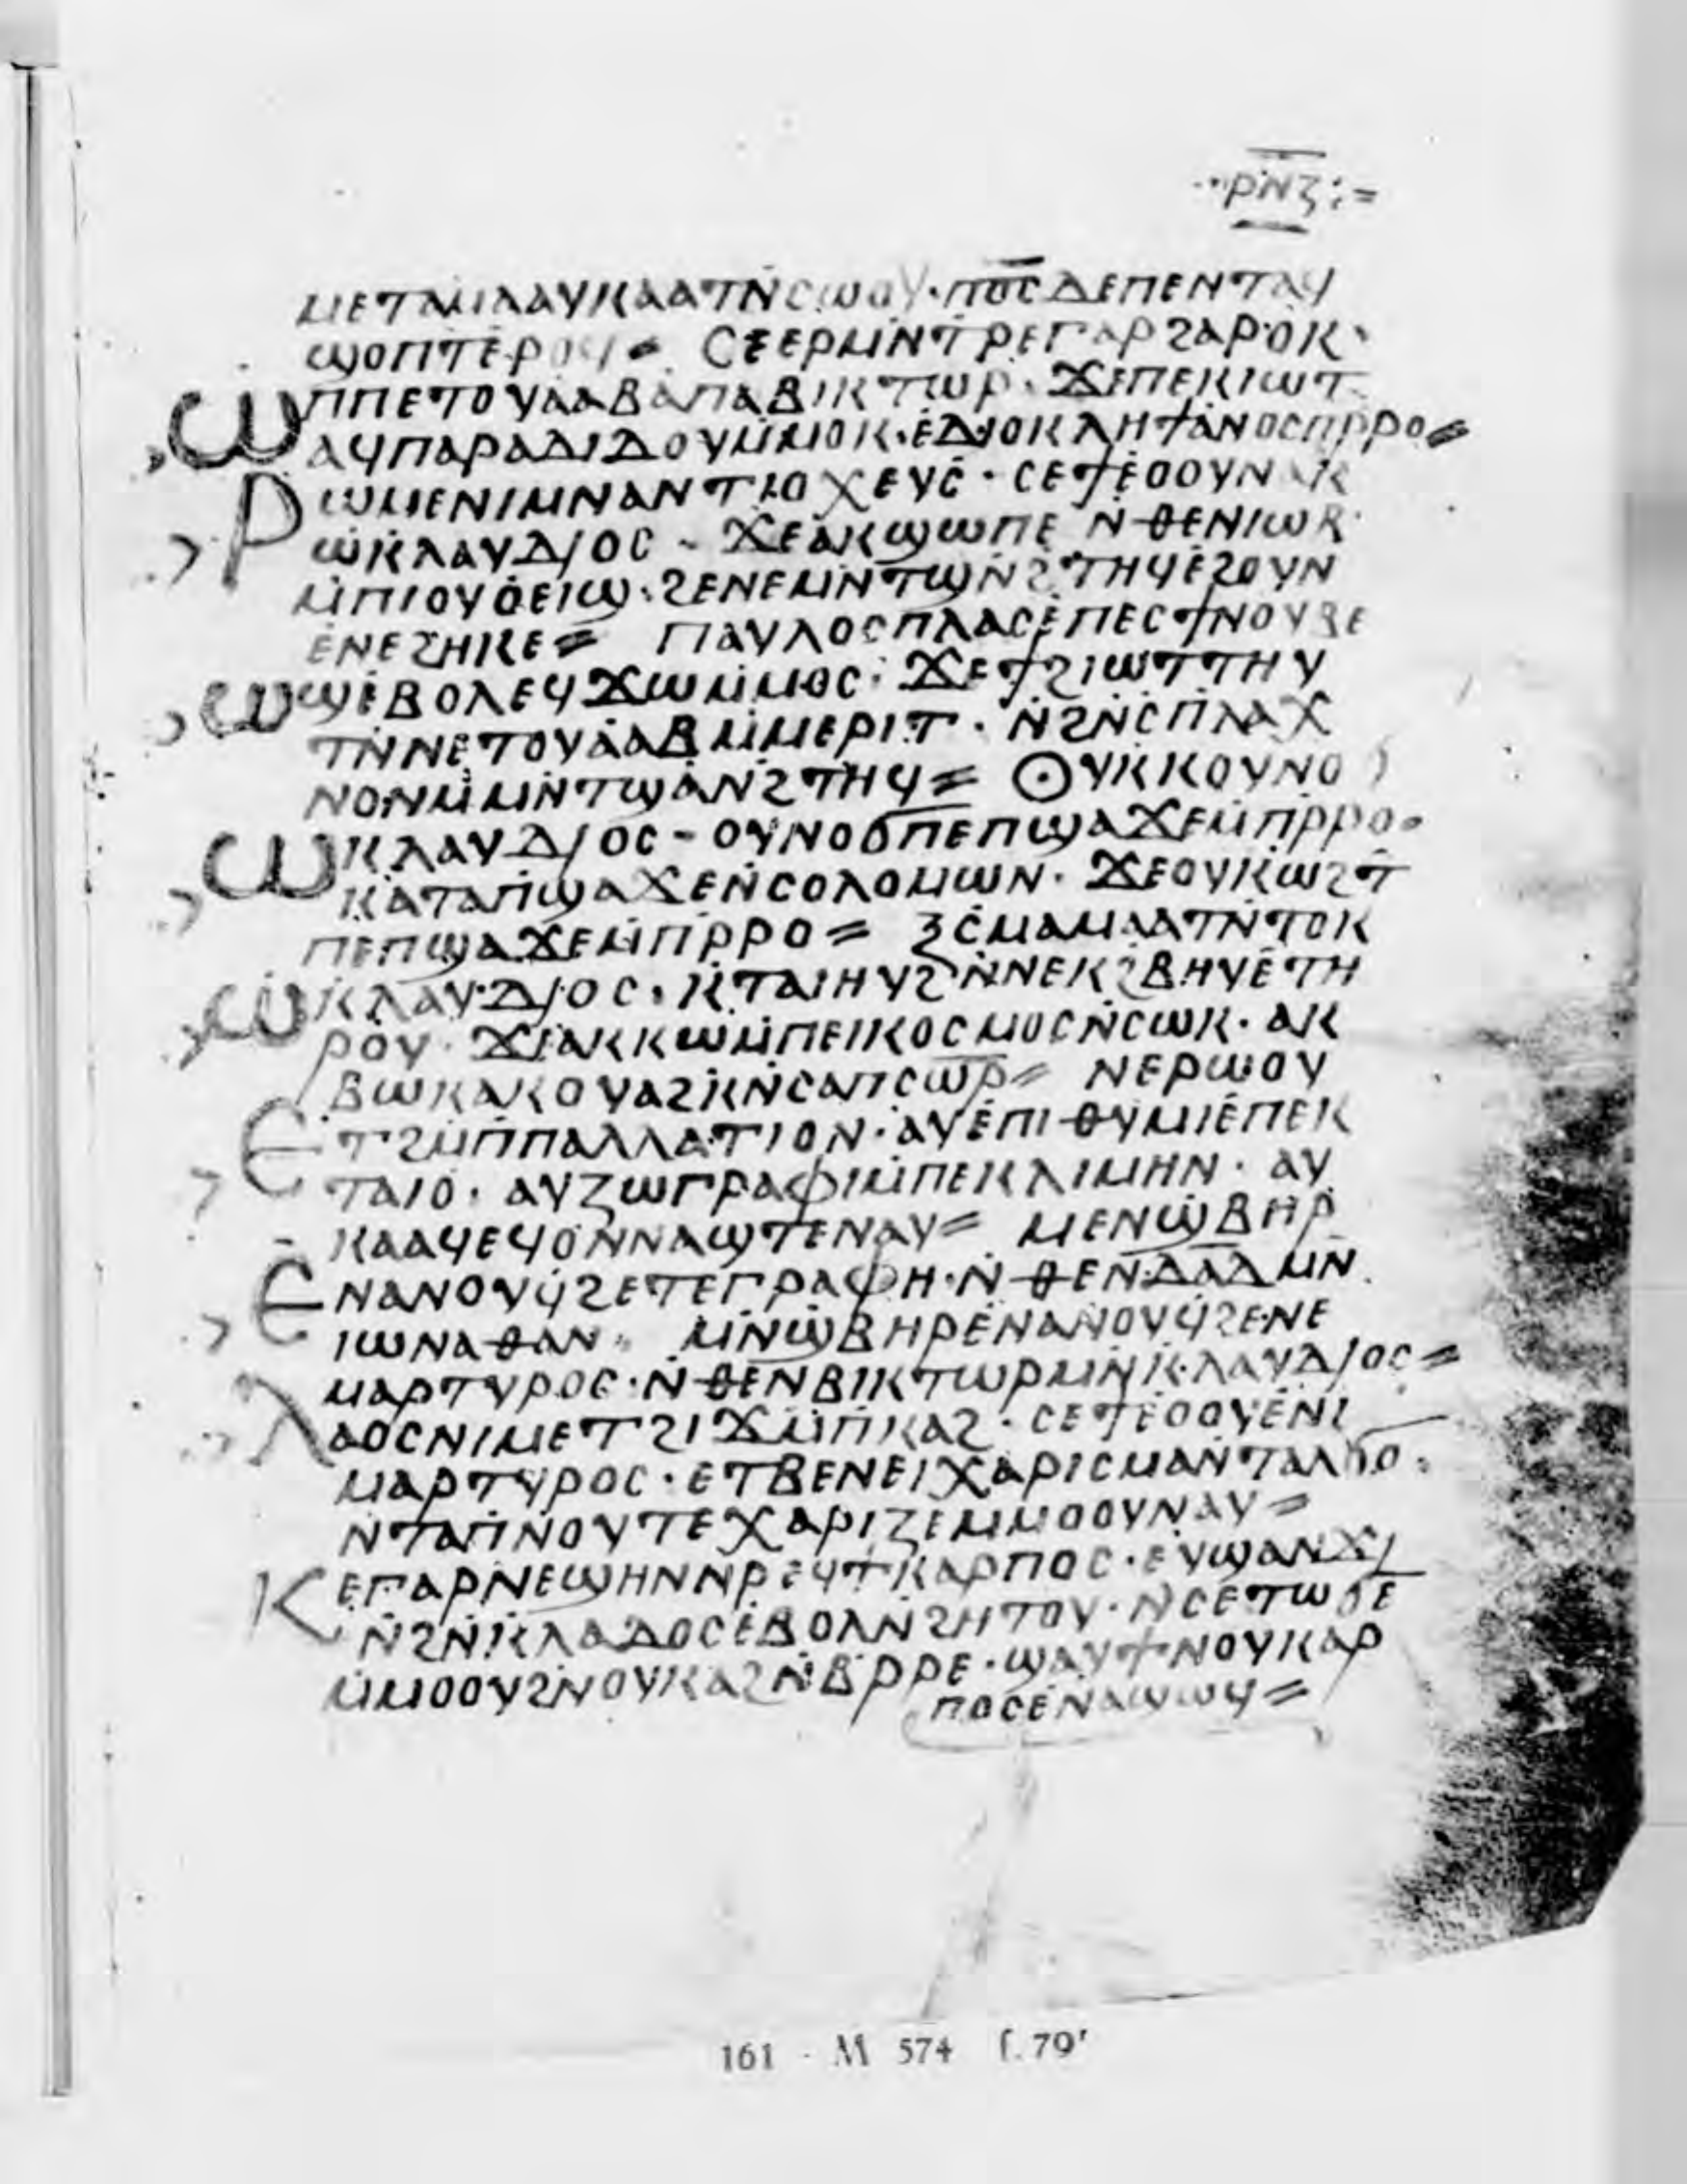 ·ⲣⲛⲍ:=
ⲙⲉⲧⲁⲙⲁⲁⲩⲕⲁⲁⲧⲛ̄ⲥⲱⲟⲩ·ⲡⲟ̄ⲥ̄ⲇⲉⲡⲉⲛⲧⲁϥ
ϣⲟⲡⲧⲉⲣⲟϥ= ⲥⲉⲉⲣⲙⲛ̄ⲧⲣⲉⲅⲁⲣϩⲁⲣⲟⲕ·
ⲱⲡⲡⲉⲧⲟⲩⲁⲁⲃⲁⲡⲁⲃⲓⲕⲧⲱⲣ·ϫⲉⲡⲉⲕⲓⲱⲧ
ⲁϥⲡⲁⲣⲁⲇⲓⲇⲟⲩⲙ̄ⲙⲟⲕ·ⲉⲇⲓⲟⲕⲗⲏϯⲁⲛⲟⲥⲡⲣ̄ⲣⲟ=
ⲣⲱⲙⲉⲛⲓⲙⲛⲁⲛⲧⲓⲟⲭⲉⲩⲥ·ⲥⲉϯⲉⲟⲟⲩⲛⲁⲕ
ⲱⲕⲗⲁⲩⲇⲓⲟⲥ·ϫⲉⲁⲕϣⲱⲡⲉⲛ̄ⲑⲉⲛⲓⲱⲃ·
ⲙ̄ⲡⲓⲟⲩⲟⲉⲓϣ·ϩⲉⲛⲉⲙⲛ̄ⲧϣⲛ̄ϩⲧⲏϥⲉϩⲟⲩⲛ
ⲉⲛⲉϩⲏⲕⲉ= ⲡⲁⲩⲗⲟⲥⲡⲗⲁⲥⲉⲡⲉⲥϯⲛⲟⲩⲃⲉ
ⲱϣⲉⲃⲟⲗⲉϥϫⲱⲙ̄ⲙⲟⲥ·ϫⲉϯϩⲓⲱⲧⲧⲏⲩ
ⲧⲛ̄ⲛⲉⲧⲟⲩⲁⲁⲃⲙ̄ⲙⲉⲣⲓⲧ·ⲛ̄ϩⲛ̄ⲥⲡⲗⲁⲭ
ⲛⲟⲛⲙ̄ⲙⲛ̄ⲧϣⲁⲛϩⲧⲏϥ= ⲟⲩⲕⲕⲟⲩⲛⲟ
ⲱⲕⲗⲁⲩⲇⲓⲟⲥ-ⲟⲩⲛⲟϭⲡⲉⲡϣⲁϫⲉⲙ̄ⲡⲣ̄ⲣⲟ·
ⲕⲁⲧⲁⲡϣⲁϫⲉⲛ̄ⲥⲟⲗⲟⲙⲱⲛ·ϫⲉⲟⲩⲕⲱϩⲧ
ⲡⲉⲡϣⲁϫⲉⲙ̄ⲡⲣ̄ⲣⲟ= ⲍⲥⲙⲁⲙⲁⲁⲧⲛ̄ⲧⲟⲕ
ⲱⲕⲗⲁⲩⲇⲓⲟⲥ·ⲕⲧⲁⲓⲏⲩϩⲛ̄ⲛⲉⲕϩⲃⲏⲩⲉⲧⲏ
ⲣⲟⲩ·ϫⲓⲁⲕⲕⲱⲙ̄ⲡⲉⲓⲕⲟⲥⲙⲟⲥⲛ̄ⲥⲱⲕ·ⲁⲕ
ⲃⲱⲕⲁⲕⲟⲩⲁϩⲕⲛ̄ⲥⲁⲡⲥⲱ̄ⲣ̄= ⲛⲉⲣⲱⲟⲩ
ⲉⲧϩⲙ̄ⲡⲡⲁⲗⲗⲁⲧⲓⲟⲛ·ⲁⲩⲉⲡⲓⲑⲩⲙⲓⲉⲡⲉⲕ
ⲧⲁⲓⲟ·ⲁⲩⲍⲱⲅⲣⲁⲫⲓⲙ̄ⲡⲉⲕⲗⲓⲙⲏⲛ·ⲁⲩ
ⲕⲁⲁϥⲉϥⲟⲛ̄ⲛⲁϣⲧⲉⲛⲁⲩ= ⲙⲉⲛϣⲃⲏⲣ
ⲉⲛⲁⲛⲟⲩϥϩⲉⲧⲉⲅⲣⲁⲫⲏ·ⲛ̄ⲑⲉⲛⲇⲁ̄ⲇ̄ⲙⲛ̄
ⲓⲱⲛⲁⲑⲁⲛ· ⲙⲛ̄ϣⲃⲏⲣⲉⲛⲁⲛⲟⲩϥϩⲉⲛⲉ
ⲙⲁⲣⲧⲩⲣⲟⲥ·ⲛ̄ⲑⲉⲛⲃⲓⲕⲧⲱⲣⲙⲛ̄ⲕⲗⲁⲩⲇⲓⲟⲥ=
ⲗⲁⲟⲥⲛⲓⲙⲉⲧϩⲓϫⲙ̄ⲡⲕⲁϩ·ⲥⲉϯⲉⲟⲟⲩⲉⲛⲓ
ⲙⲁⲣⲧⲩⲣⲟⲥ·ⲉⲧⲃⲉⲛⲉⲓⲭⲁⲣⲓⲥⲙⲁⲛ̄ⲧⲁⲗϭⲟ·
ⲛ̄ⲧⲁⲡⲛⲟⲩⲧⲉⲭⲁⲣⲓⲍⲉⲙ̄ⲙⲟⲟⲩⲛⲁⲩ=
ⲕⲉⲅⲁⲣⲛⲉϣⲏⲛⲛ̄ⲣⲉϥϯⲕⲁⲣⲡⲟⲥ·ⲉⲩϣⲁⲛϫⲓ
ⲛ̄ϩⲛ̄ⲕⲗⲁⲇⲟⲥⲉⲃⲟⲗⲛ̄ϩⲏⲧⲟⲩ·ⲛ̄ⲥⲉⲧⲱϭⲉ
ⲙ̄ⲙⲟⲟⲩϩⲛⲟⲩⲕⲁϩⲛ̄ⲃⲣ̄ⲣⲉ·ϣⲁⲩϯⲛⲟⲩⲕⲁⲣ
ⲡⲟⲥⲉⲛⲁϣⲱϥ=
161 - M 574 f. 79ʳ